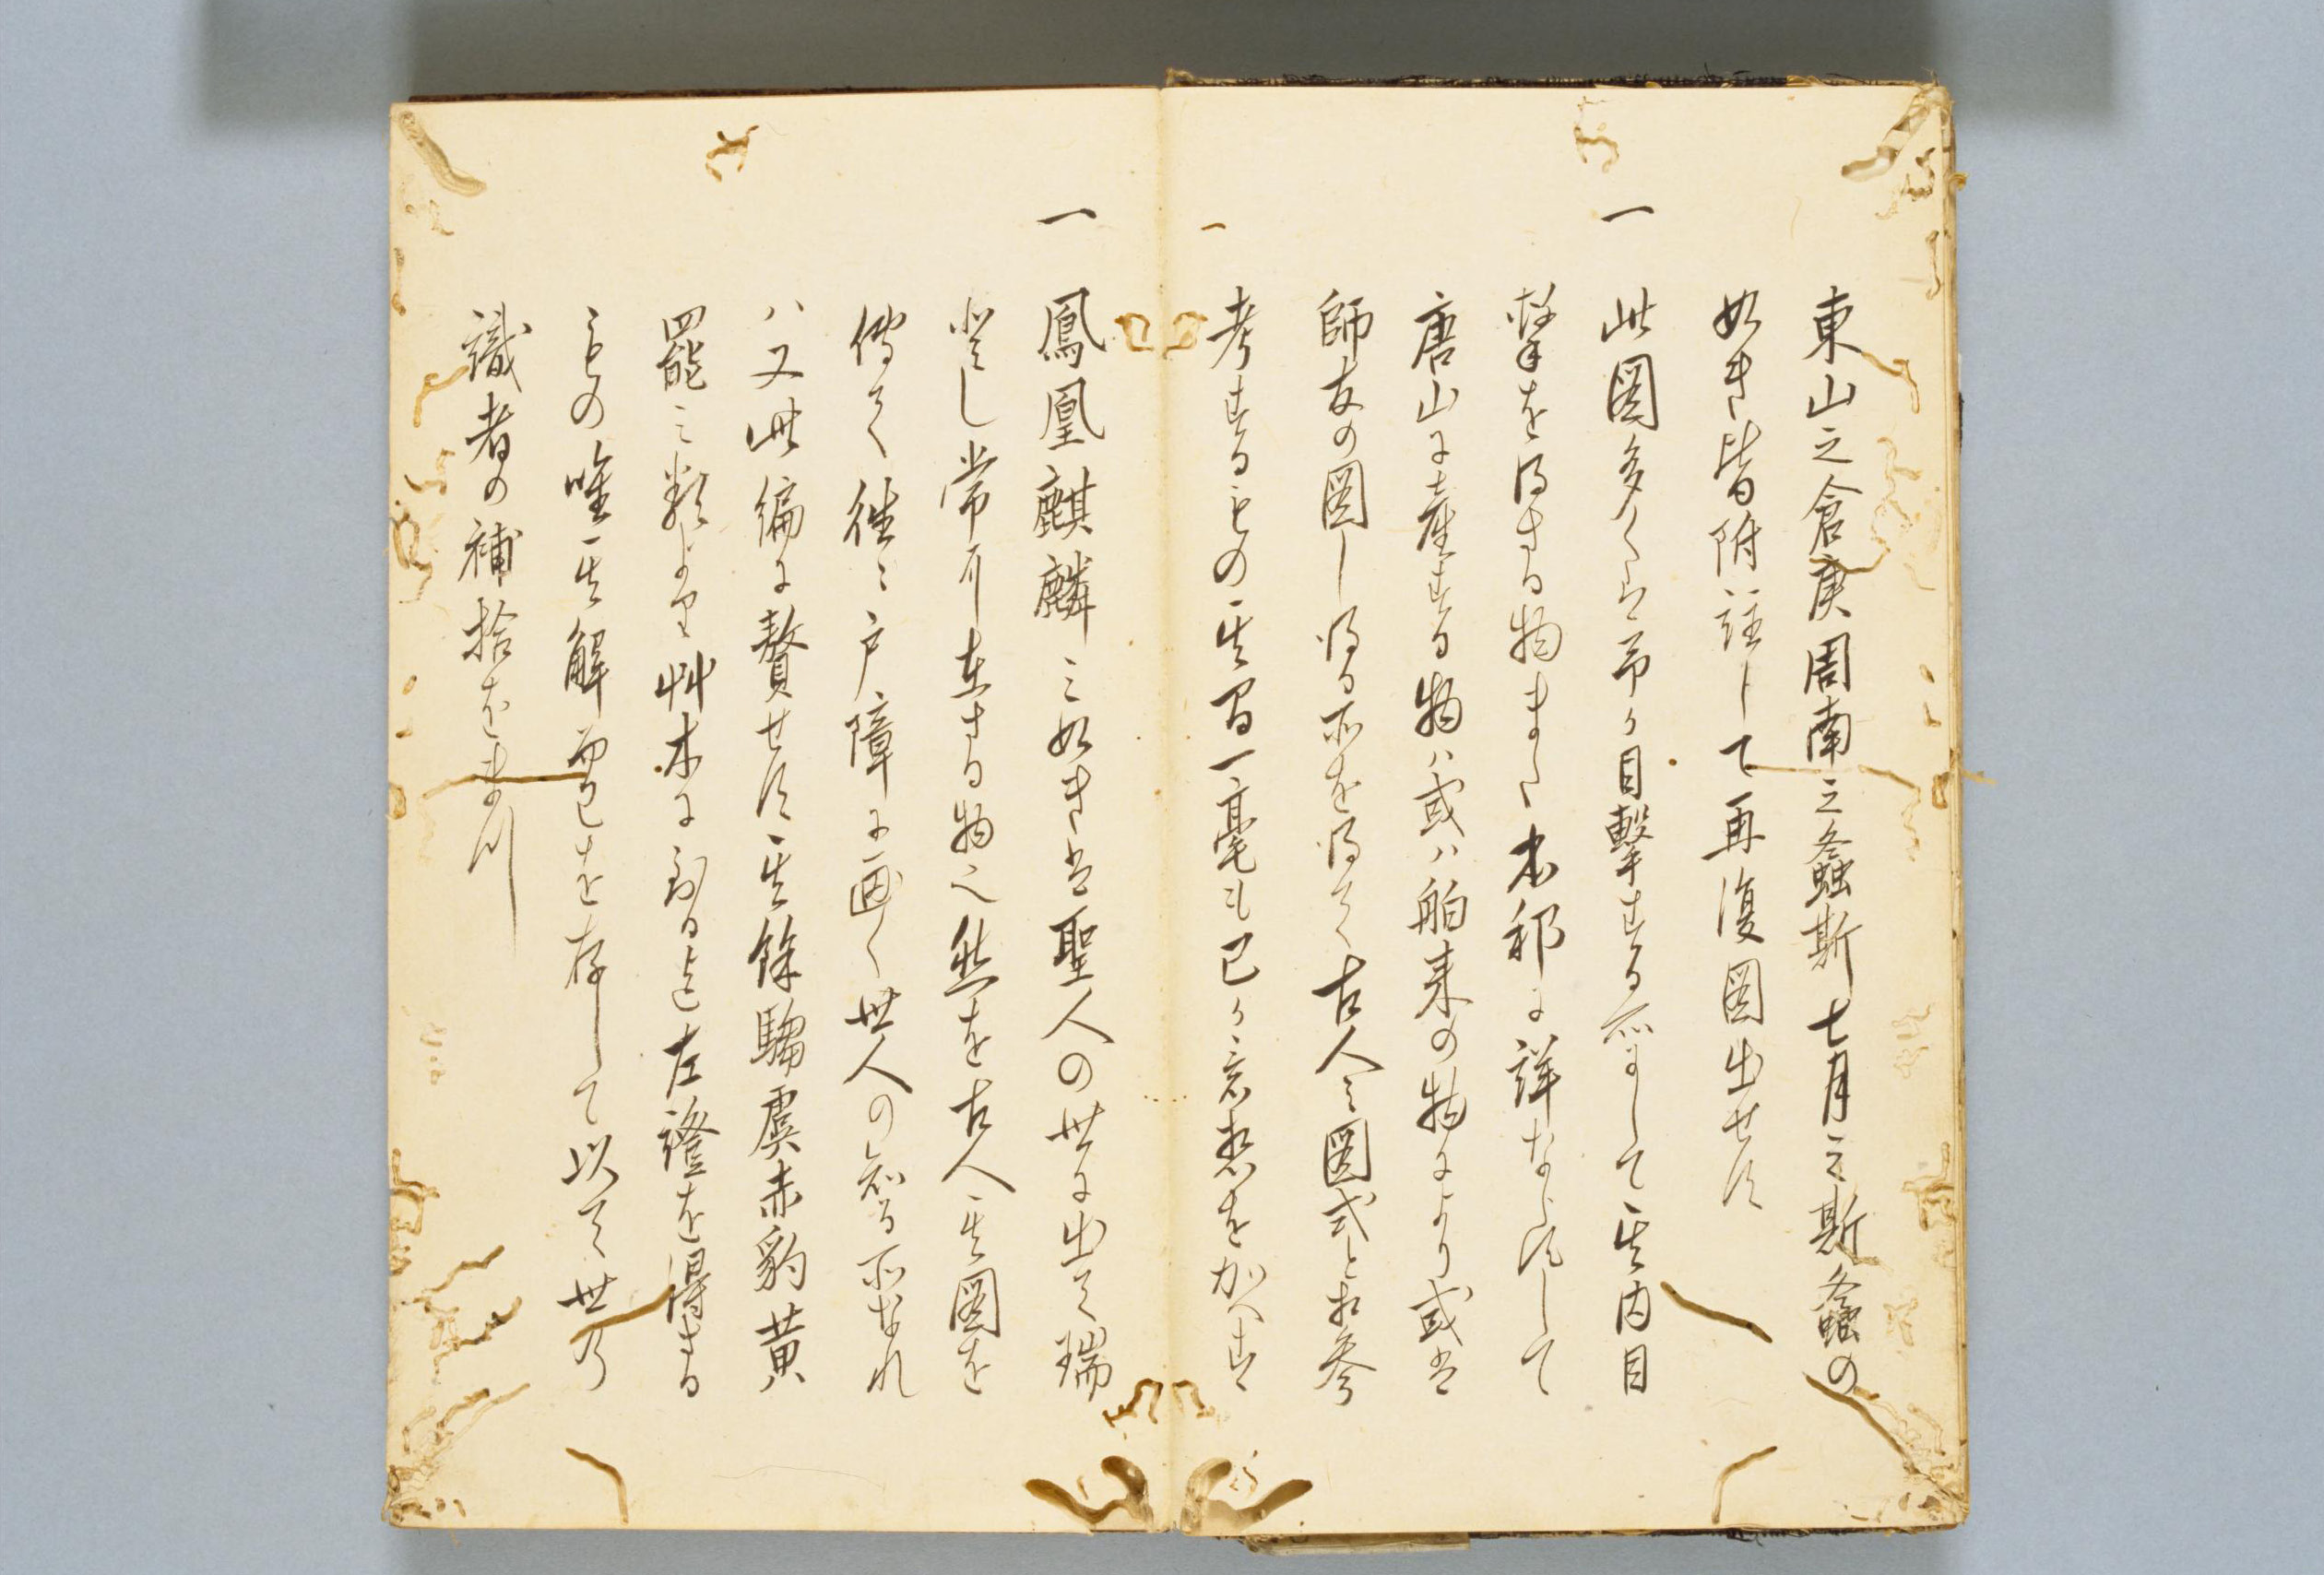 東山之倉庚周南之螽斯七月之斯螽の
如き皆附註して再復図出せす
一 此図多くは予か目撃する所にして其内目
撃を得さる物また本邦に詳ならすして
唐山に産する物ハ或ハ舶来の物により或は
師友の図し得る所を得て古人之図式と相参
考するもの其間一毫も己か意想を加へす
一 鳳凰麒麟之如きは聖人の世に出て瑞
常に在さる物也然を古人其図を
傳て往々戸障に画く世人の知る所なれ
ハ又此編に贅せす其餘騶虞赤豹黄
羆之類より艸木に到る迄左證を得さる
もの唯其解而已を存して以て世の
識者の補拾をまつ